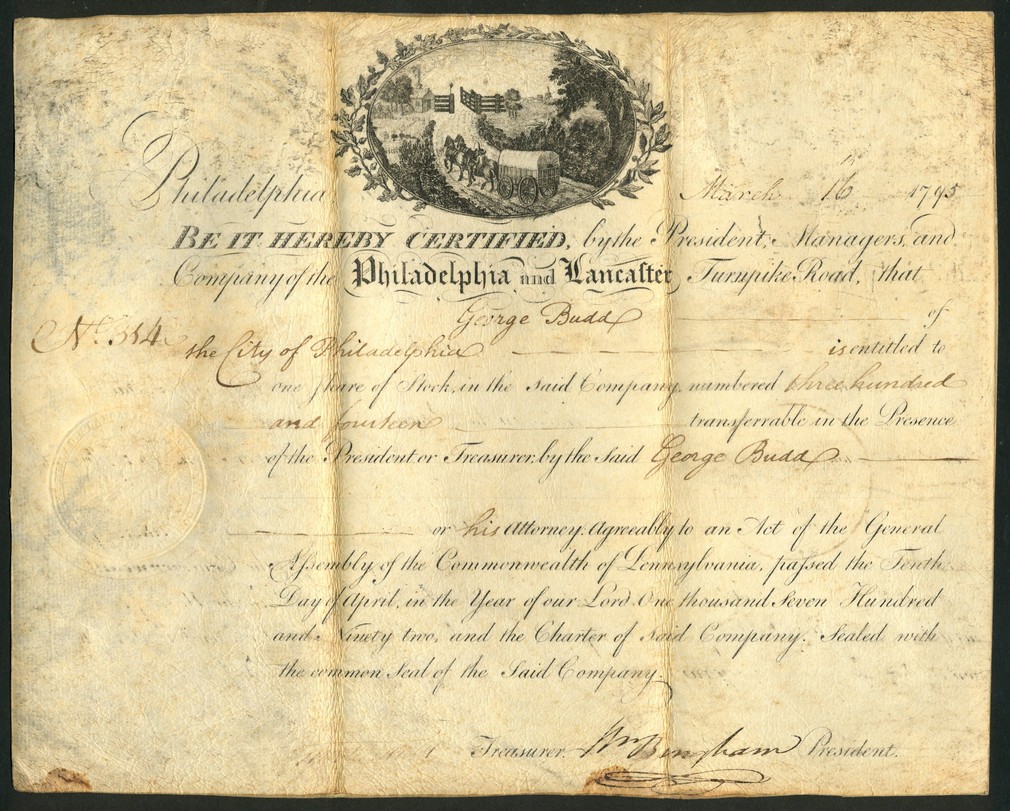 Philadelphia March 16 1795
BE IT HEREBY CERTIFIED, by the President, Managers, and
Company of the Philadelphia and Lancaster Turnpike Road, that
George Budd of
No. 314
the City of Philadelphia is entitled to
one Share of Stock, in the said Company, numbered three hundred
and fourteen transferrable in the Presence
of the President or Treasurer, by the Said George Budd
or his Attorney. Agreeably to an Act of the General
Assembly of the Commonwealth of Pennsylvania, passed the Tenth
Day of April, in the Year of our Lord One thousand Seven Hundred
and Ninety two, and the Charter of said Company. Sealed with
the common Seal of the Said Company
Treasurer. Wm Bingham President.